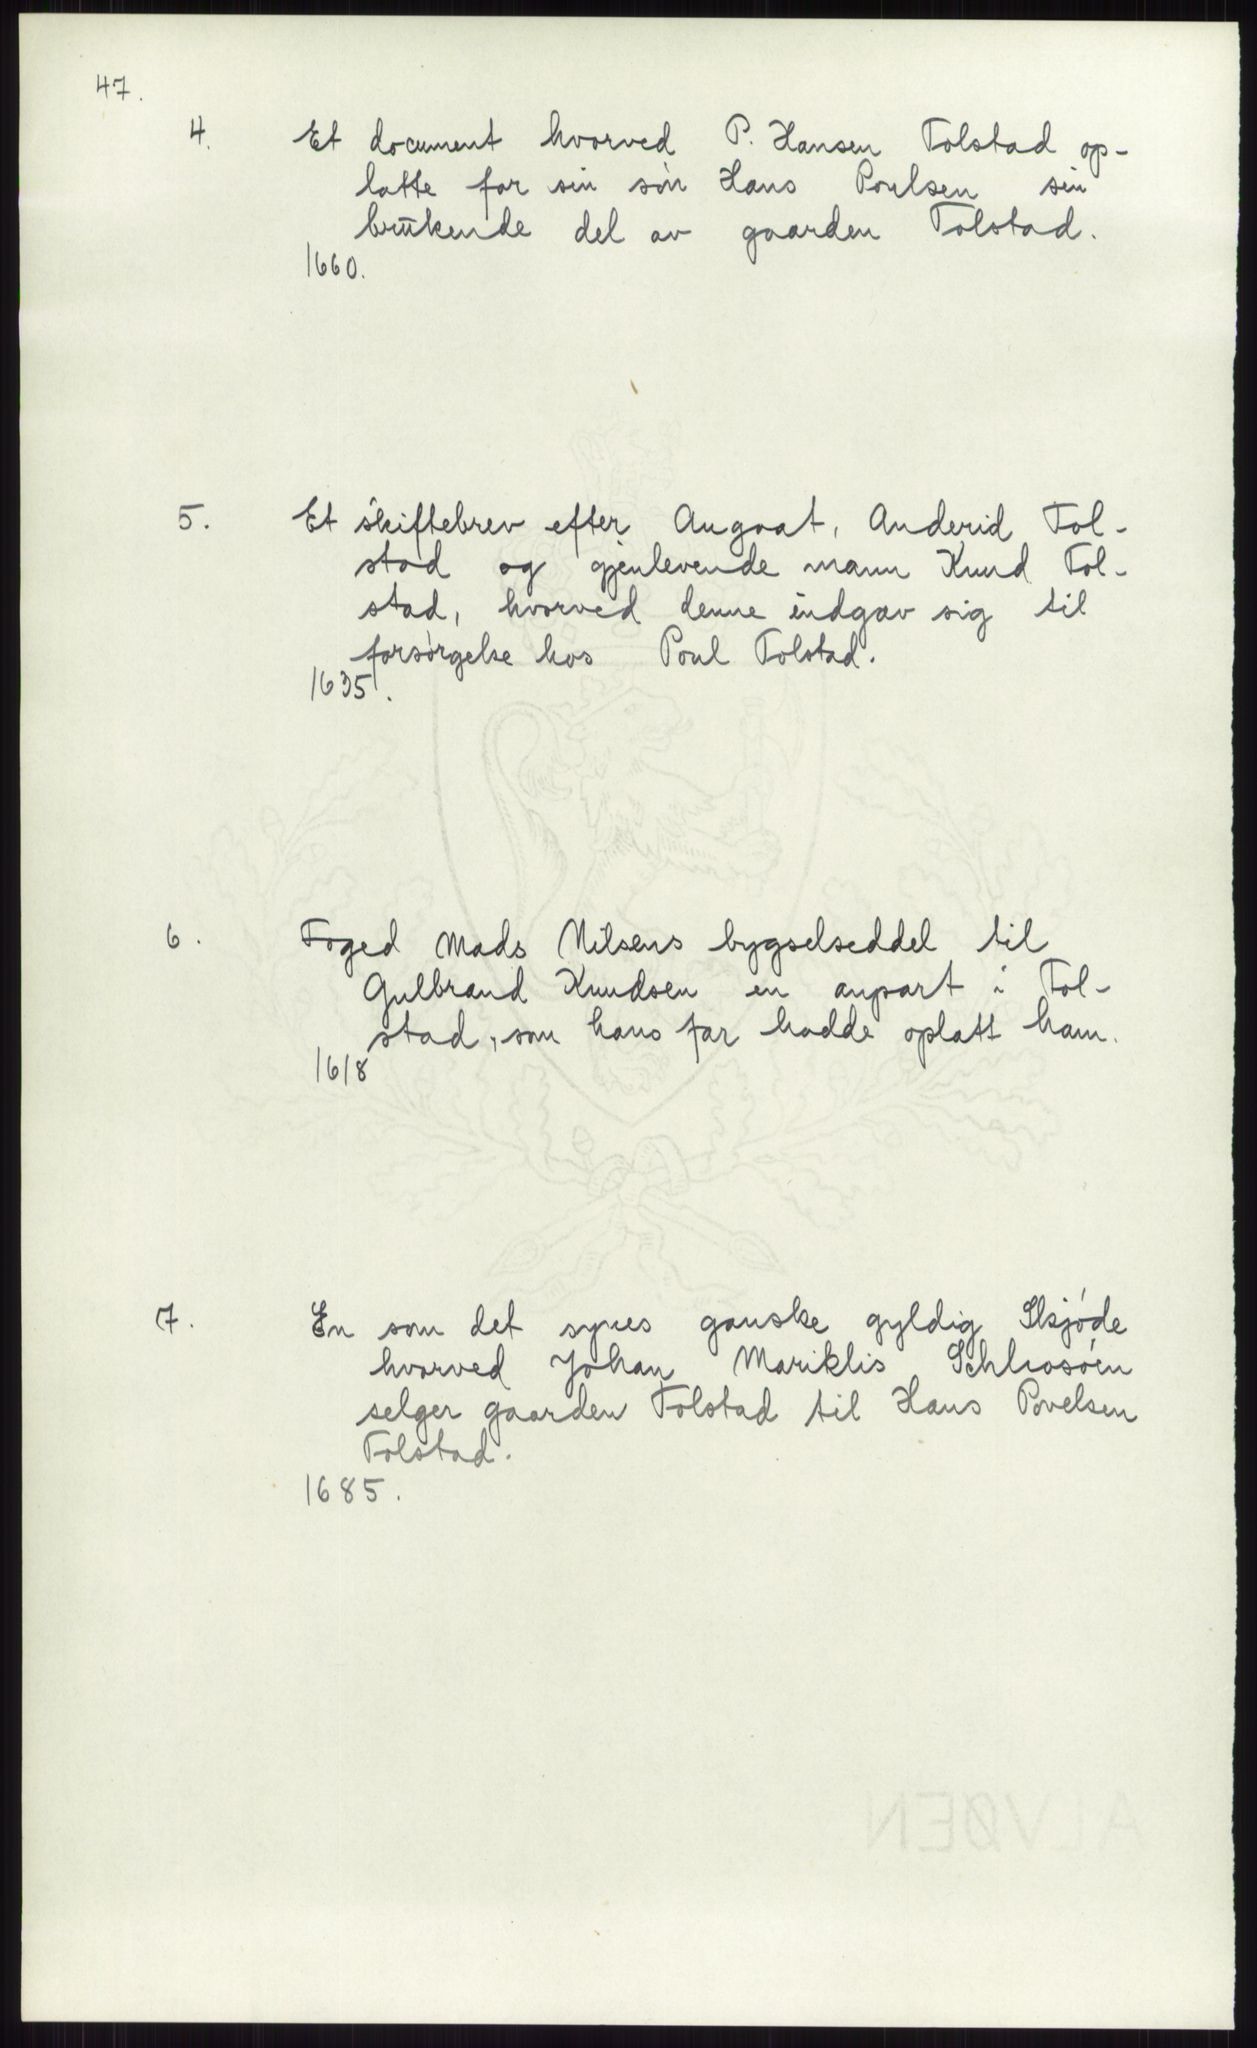 47.
4. Et document hvorved P. Hansen Tolstad op-
latte for sin søn Hans Poulsen sin
brŭkende del av gaarden Tolstad.
1660.
5. Et skiftebrev efter Angaat, Anderid Tol-
stad og gjenlevende mann Knud Tol-
stad, hvorved denne indgav sig til
forsørgelse hos Poul Tolstad.
1635.
6. Foged Mads Nilsens bygselseddel til
Gulbrand Knudsen en anpart i Tol-
stad, som hans far hadde oplatt ham.
1618
7. En som det synes ganske gyldig Skjøde
hvorved Johan Mariklis
selger gaarden Tolstad til Hans Povelsen
Tolstad.
1685.
ALVØEN